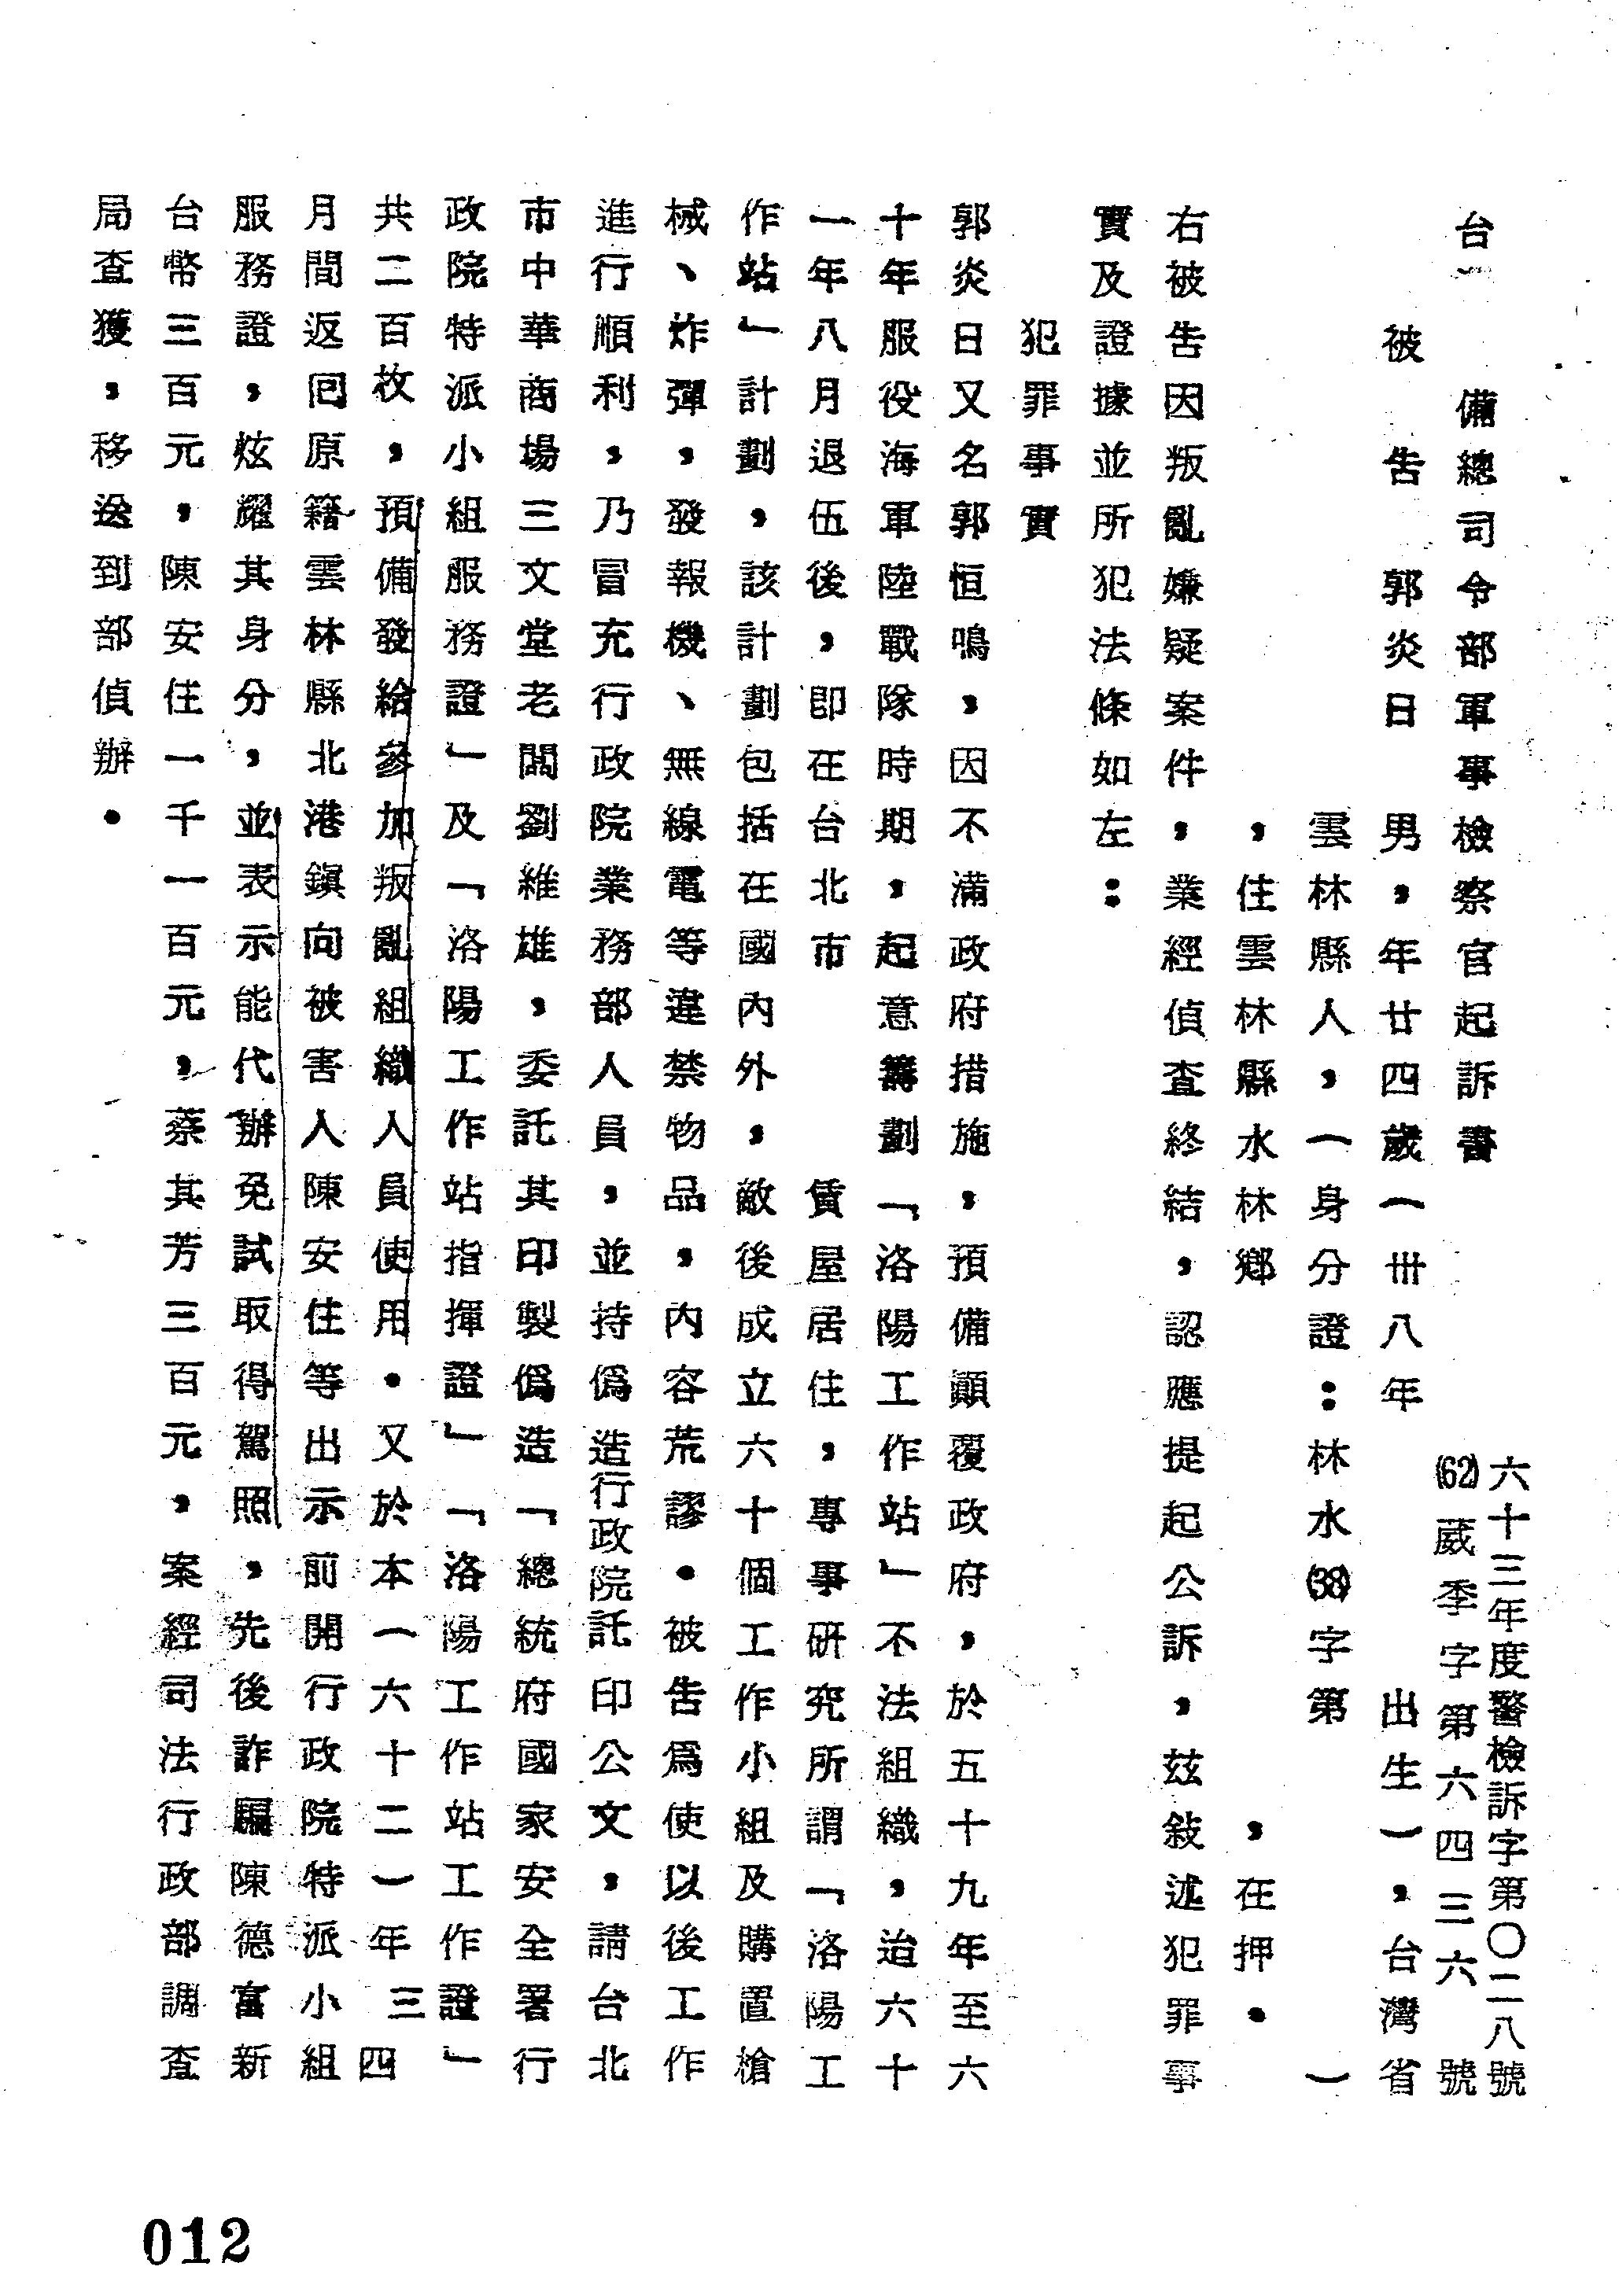 六十三年度警檢訴字第〇二八號
(62)葳季字第六四三六號
台 備總司令部軍事檢察官起訴書
被告 郭炎日 男，年廿四歲（卅八年 出生），台灣省
雲林縣人，（身分證：林水(38)字第 ）
，住雲林縣水林鄉 ，在押。
右被告因叛亂嫌疑案件，業經偵查終結，認應提起公訴，玆敍述犯罪事
實及證據並所犯法條如左：
犯罪事實
郭炎日又名郭恒鳴，因不滿政府措施，預備顚覆政府，於五十九年至六
十年服役海軍陸戰隊時期，起意籌劃「洛陽工作站」不法組織，迨六十
一年八月退伍後，即在台北市 賃屋居住，專事研究所謂「洛陽工
作站」計劃，該計劃包括在國內外，敵後成立六十個工作小組及購置槍
械、炸彈，發報機、無線電等違禁物品，內容荒謬。被告爲使以後工作
進行順利，乃冒充行政院業務部人員，並持僞造行政院託印公文，請台北
市中華商場三文堂老闆劉維雄，委託其印製僞造「總統府國家安全署行
政院特派小組服務證」及「洛陽工作站指揮證」「洛陽工作站工作證」
共二百枚，預備發給參加叛亂組織人員使用。又於本（六十二）年三四
月間返回原籍雲林縣北港鎭向被害人陳安住等出示前開行政院特派小組
服務證，炫耀其身分，並表示能代辦免試取得駕照，先後詐騙陳德富新
台幣三百元，陳安住一千一百元，蔡其芳三百元，案經司法行政部調查
局查獲，移送到部偵辦。
012